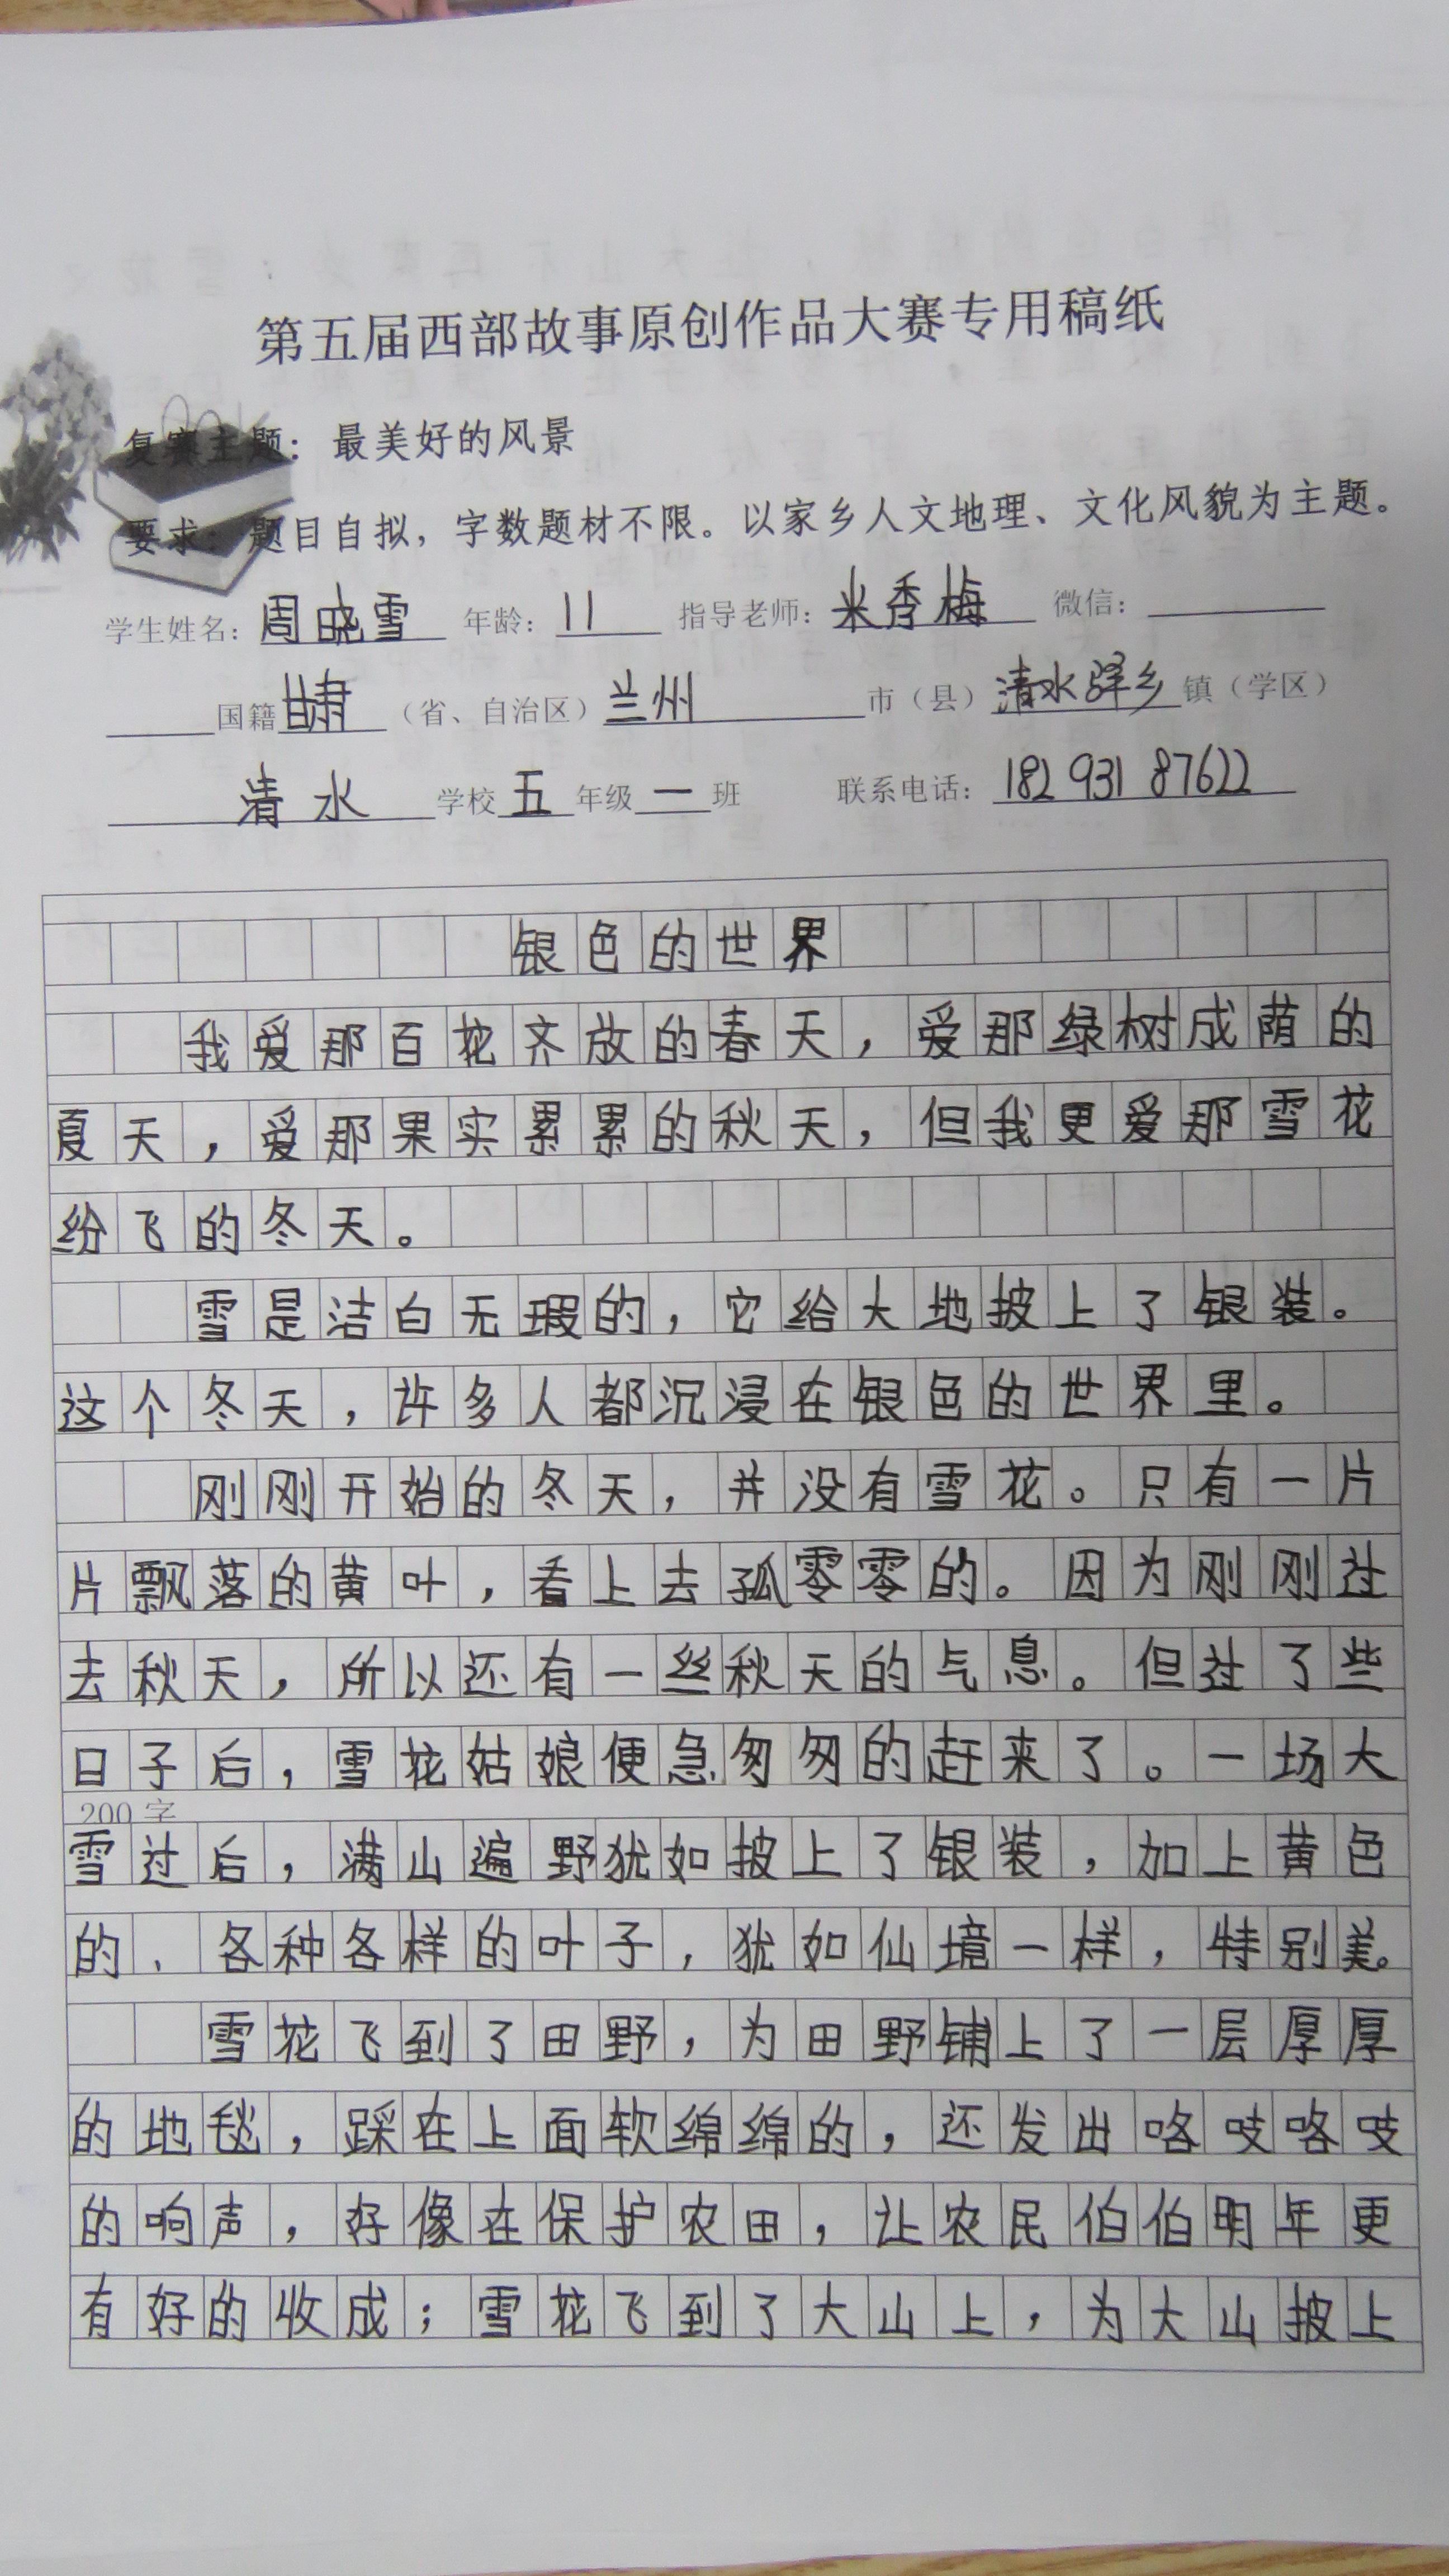 第五届西部故事原创作品大赛专用稿纸
复赛主题：最美好的风景
要求：题目自拟，字数题材不限。以家乡人文地理、文化风貌为主题。
学生姓名：周晓雪 年龄：11 指导老师：米秀梅 微信：
国籍甘肃（省、自治区）兰州 市（县）清水驿乡 镇（学区）
清水 学校 五 年级 一 班 联系电话：182 931 87622
银色的世界
我爱那百花齐放的春天，爱那绿树成荫的
夏天，爱那果实累累的秋天，但我更爱那雪花
纷飞的冬天。
雪是洁白无瑕的，它给大地披上了银装。
这个冬天，许多人都沉浸在银色的世界里。
刚刚开始的冬天，并没有雪花。只有一片
片飘落的黄叶，看上去孤零零的。因为刚刚过
去秋天，所以还有一丝秋天的气息。但过了些
日子后，雪花姑娘便急匆匆的赶来了。一场大
200字
雪过后，满山遍野犹如披上了银装，加上黄色
的、各种各样的叶子，犹如仙境一样，特别美。
雪花飞到了田野，为田野铺上了一层厚厚
的地毯，踩在上面软绵绵的，还发出咯吱咯吱
的响声，好像在保护农田，让农民伯伯明年更
有好的收成；雪花飞到了大山上，为大山披上